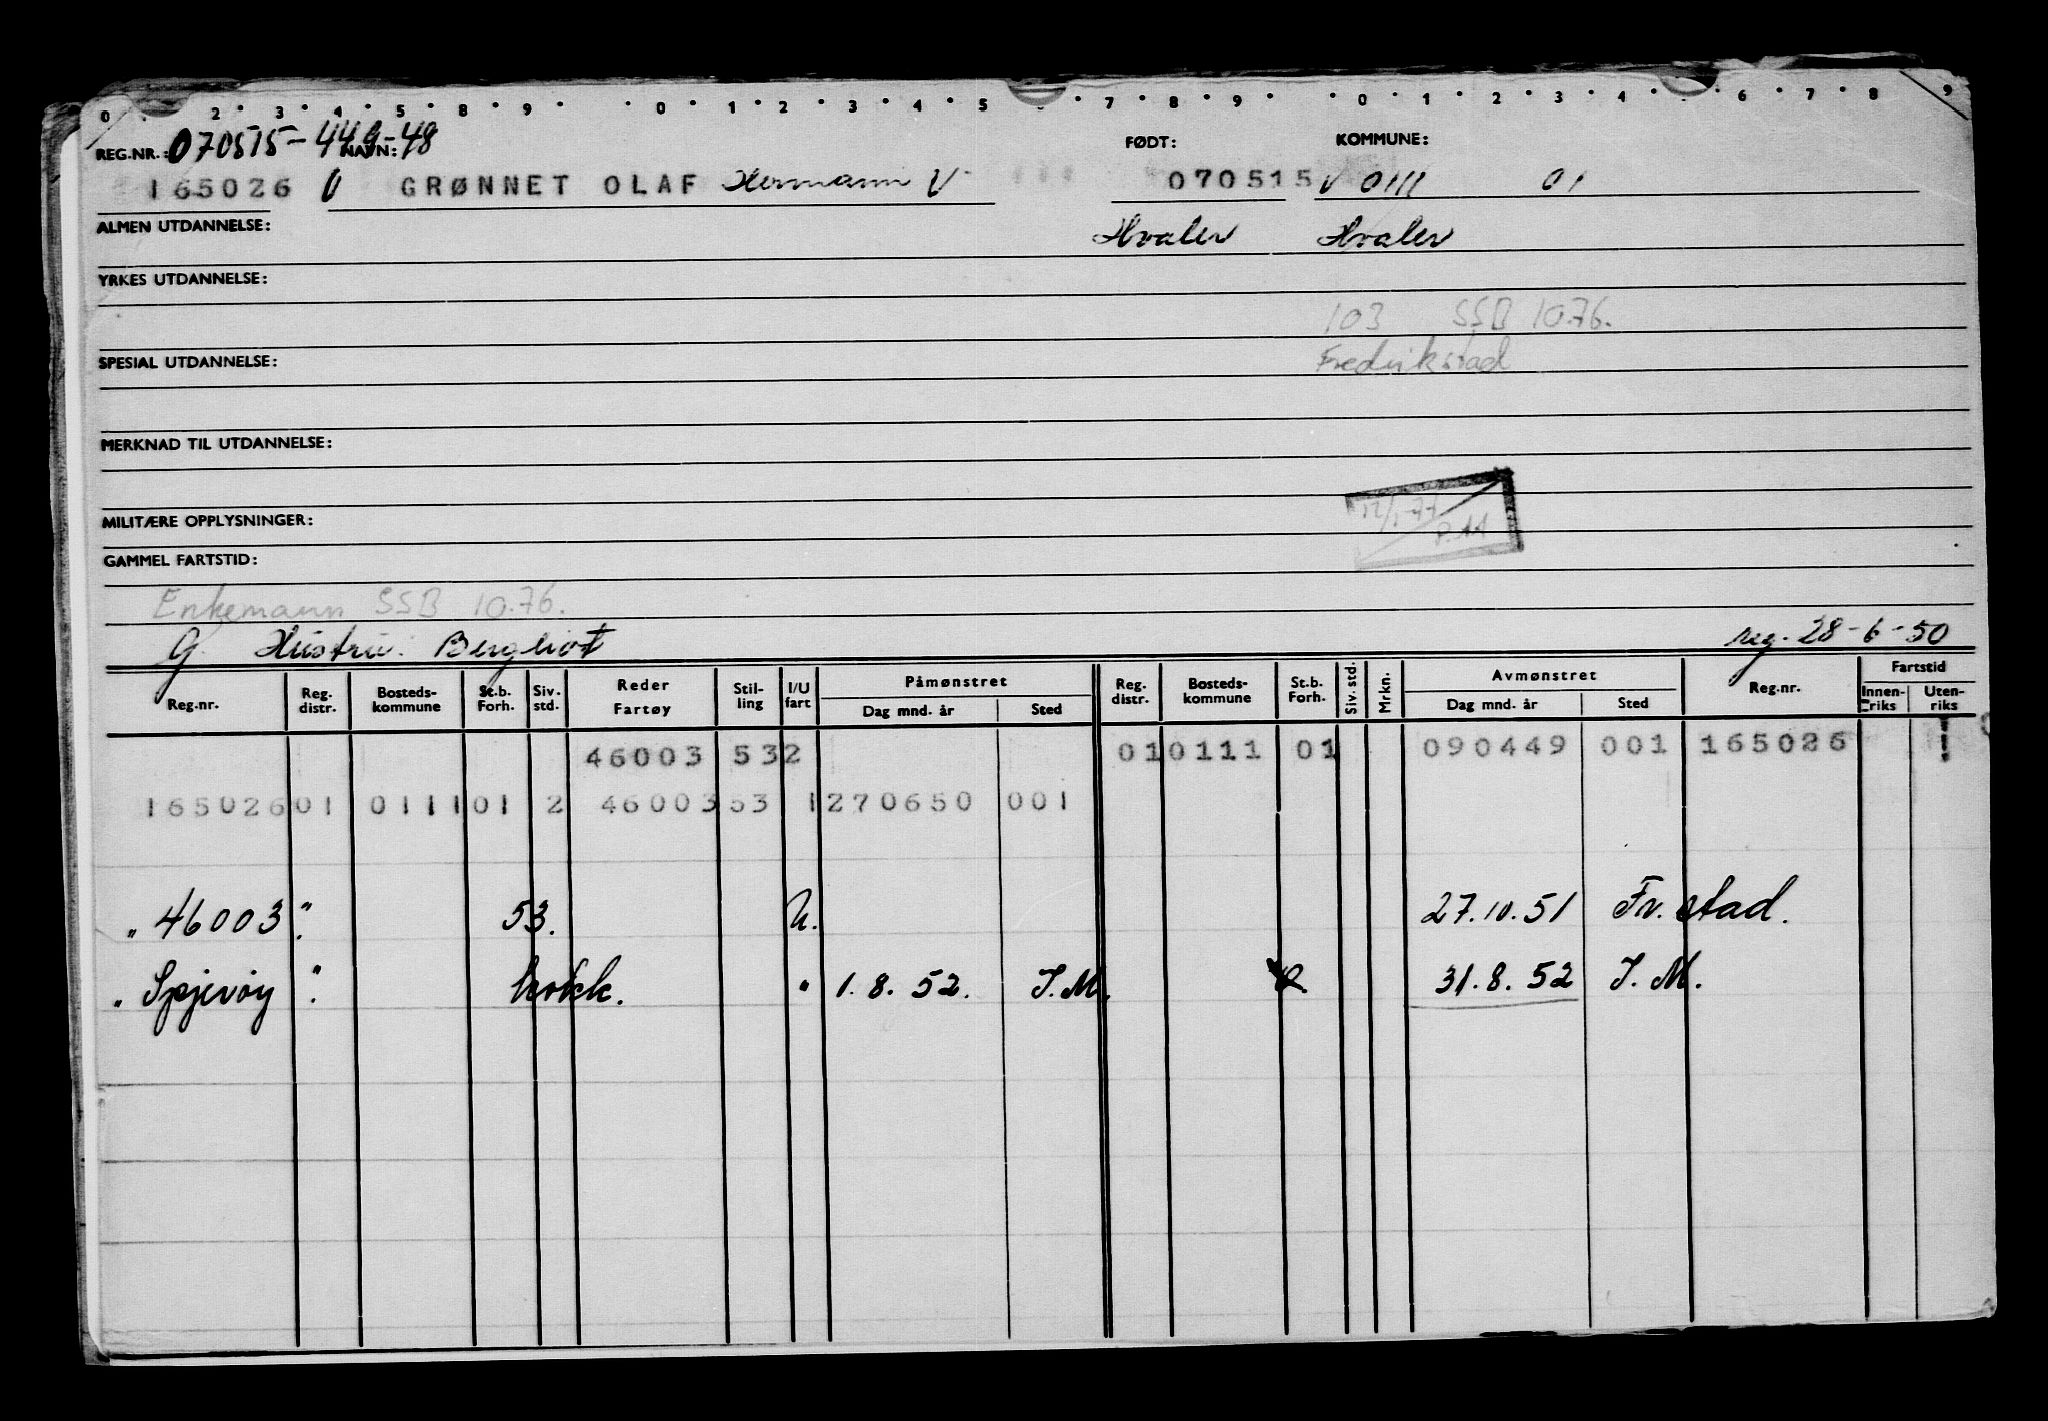 0 2 3 4 5 8 9 0 1 2 3 4 5 7 8 9 0 1 2 3 4 6 7 8 9
REG.NR.: 070515-449-48 NAVN: FØDT: KOMMUNE:
165026 V GRØNNET OLAF Hermann V 070515 V 0111 01
ALMEN UTDANNELSE: Hvaler Hvaler
YRKES UTDANNELSE:
103 SSB 10.76.
SPESIAL UTDANNELSE: Fredrikstad
MERKNAD TIL UTDANNELSE:
12/1-77
MILITÆRE OPPLYSNINGER: P.AA
GAMMEL FARTSTID:
Enkemann SSB 10.76.
G. Hustru: Bergliot reg. 28-6-50
Reg.nr. Reg. distr. Bosteds-kommune St.b. Forh. Siv. std. Reder Fartøy Stil-ling I/U fart Påmønstret Dag mnd. år Sted Reg. distr. Bosteds-kommune St.b. Forh. Siv. std. Mrkn. Avmønstret Dag mnd. år Sted Reg.nr. Fartstid Innen-riks Uten-riks
46003 53 2 01 0111 01 090449 001 165026
165026 01 0111 01 2 46003 53 1 270650 001
" 46003 " 53. U. 27.10.51 Fr.stad.
" Spjerøy " kokk. " 1.8.52. I.M. 31.8.52 I.M.